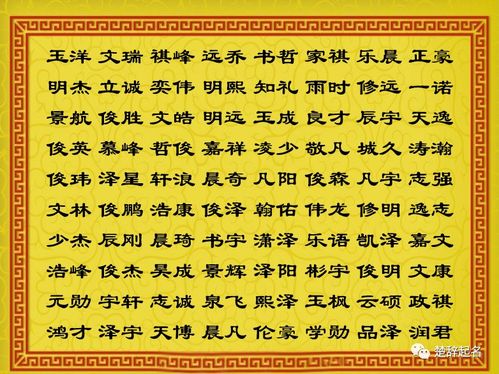 玉洋 文瑞 祺峰 远乔 书哲 家祺 乐晨 正豪
明杰 立诚 奕伟 明熙 知礼 雨时 修远 一诺
景航 俊胜 文皓 明远 玉成 良才 辰宇 天逸
俊英 慕峰 哲俊 嘉祥 凌少 敬凡 城久 涛瀚
俊玮 泽星 轩浪 晨奇 凡阳 俊森 凡宇 志强
文林 俊鹏 浩康 俊泽 翰佑 伟龙 修明 逸志
少杰 辰刚 晨琦 书宇 潇泽 乐语 凯泽 嘉文
浩峰 俊杰 昊成 景辉 泽阳 彬宇 俊明 文康
元勋 宇轩 志诚 泉飞 熙泽 玉枫 云硕 政祺
鸿才 泽宇 天博 晨凡 伦豪 学勋 品泽 润君
楚辞起名